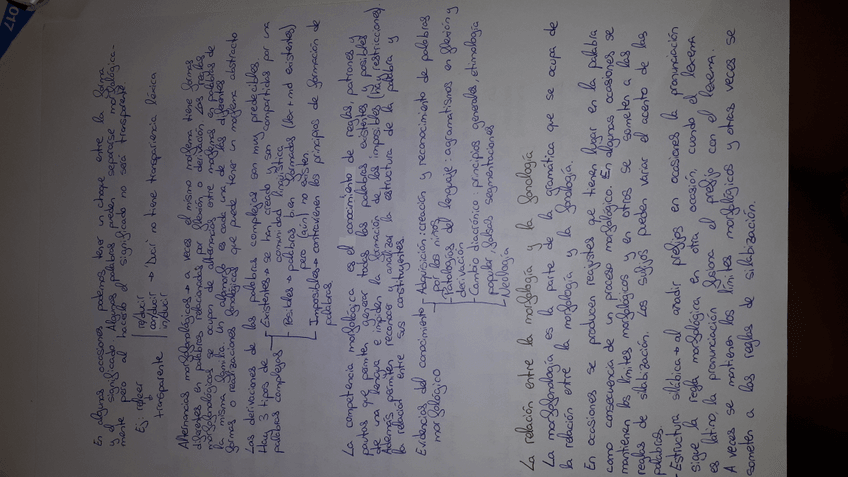 En algunas ocasiones podemos tener un choque entre la forma
y el significado. Algunas palabras pueden separarse morfológica-
mente pero al hacerlo el significado no será transparente
Ej: releer re/ducir
↓ con/ducir → Ducir no tiene transparencia léxica
transparente in/ducir
Alternancias morfofonológicas → a veces el mismo morfema tiene formas
diferentes en palabras relacionadas por flexión o derivación. Las reglas
morfofonológicas se ocupan de alternancias entre morfemas en palabras de
la misma familia. Un alomorfo es cada una de las diferentes
formas o realizaciones fonológicas que puede tener un morfema abstracto
Las derivaciones de las palabras complejas son muy predecibles.
Hay 3 tipos de Existentes → se han creado y son compartidas por una
palabras complejas comunidad lingüística
Posibles → palabras bien formadas (lex + md existentes)
pero (aún) no existen
Imposibles → contravienen los principios de formación de
palabras
La competencia morfológica es el conocimiento de reglas, patrones y
pautas que permiten generar todas las palabras existentes y posibles
de una lengua e impiden la formación de las imposibles (hay restricciones)
Además permiten reconocer y analizar la estructura de la palabra y
la relación entre sus constituyentes.
Evidencias del conocimiento Adquisición: creación y reconocimiento de palabras
morfológico por los niños
Patologías del lenguaje: agramatismos en flexión y
derivación
Cambio diacrónico: principios generales, etimología
popular, falsas segmentaciones
Neología
La relación entre la morfología y la fonología
La morfofonología es la parte de la gramática que se ocupa de
la relación entre la morfología y la fonología.
En ocasiones se producen reajustes que tienen lugar en la palabra
como consecuencia de un proceso morfológico. En algunas ocasiones se
mantienen los límites morfológicos y en otros se someten a las
reglas de silabización. Los sufijos pueden variar el acento de las
palabras.
- Estructura silábica → al añadir prefijos en ocasiones la pronunciación
sigue la regla morfológica, en otra ocasión, cuando el lexema
es latino, la pronunciación fusiona el prefijo con el lexema.
A veces se mantienen los límites morfológicos y otras veces se
someten a las reglas de silabización.
017